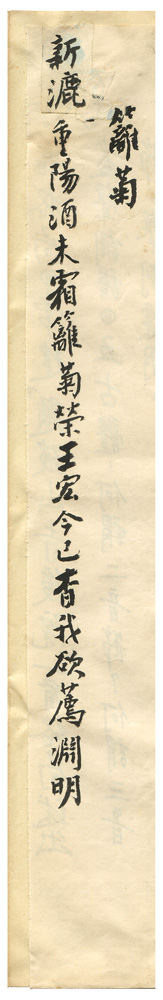 籬菊
新漉重陽酒未霜籬菊榮王宏今已杳我欲薦淵明